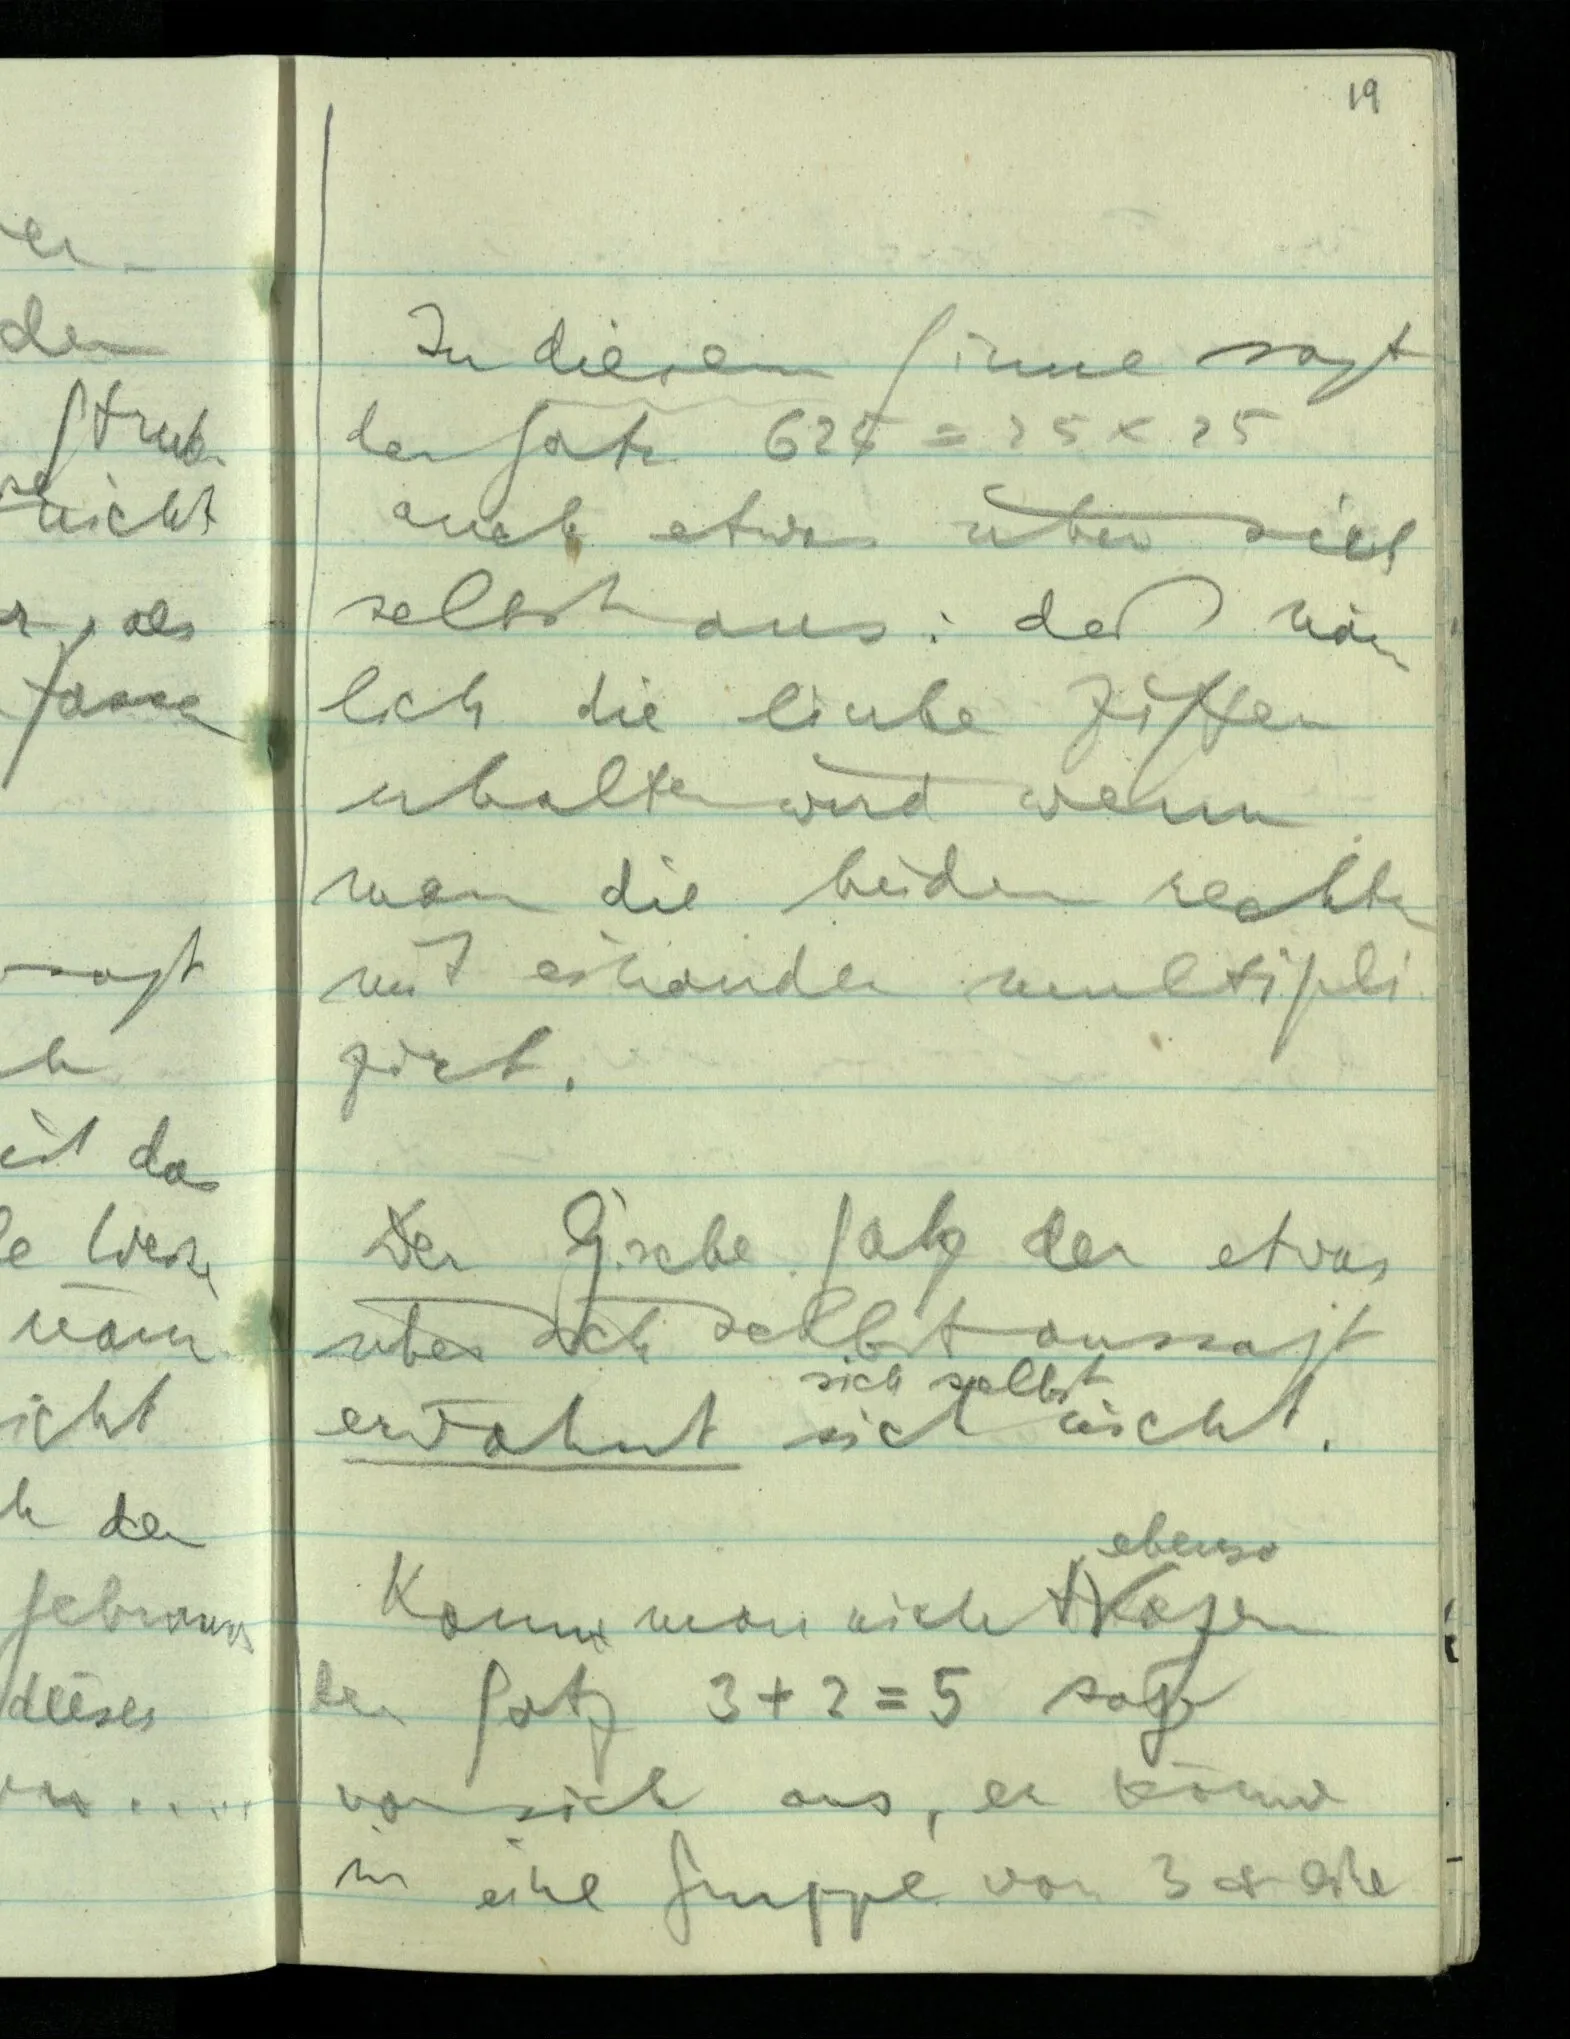 er-
den
Struk-
se
nicht
r, als
fasse
sagt
h
ist da
le Weise
näm
icht
h den
gebrauch
dieses
....
19
In diesem Sinne sagt
der Satz 625 = 25 × 25
auch etwas über sich
selbst aus: daß näm
lich die linke Ziffer
erhalten wird wenn
man die beiden rechten
mit einander multipli
zirt.
Der Gj.sche Satz der etwas
über sich selbst aussagt
sich selbst
erwähnt sich nicht.
ebenso
Kann man nicht sagen
der Satz 3 + 2 = 5 sage
von sich aus, er könne
in eine Gruppe von 3 & eine